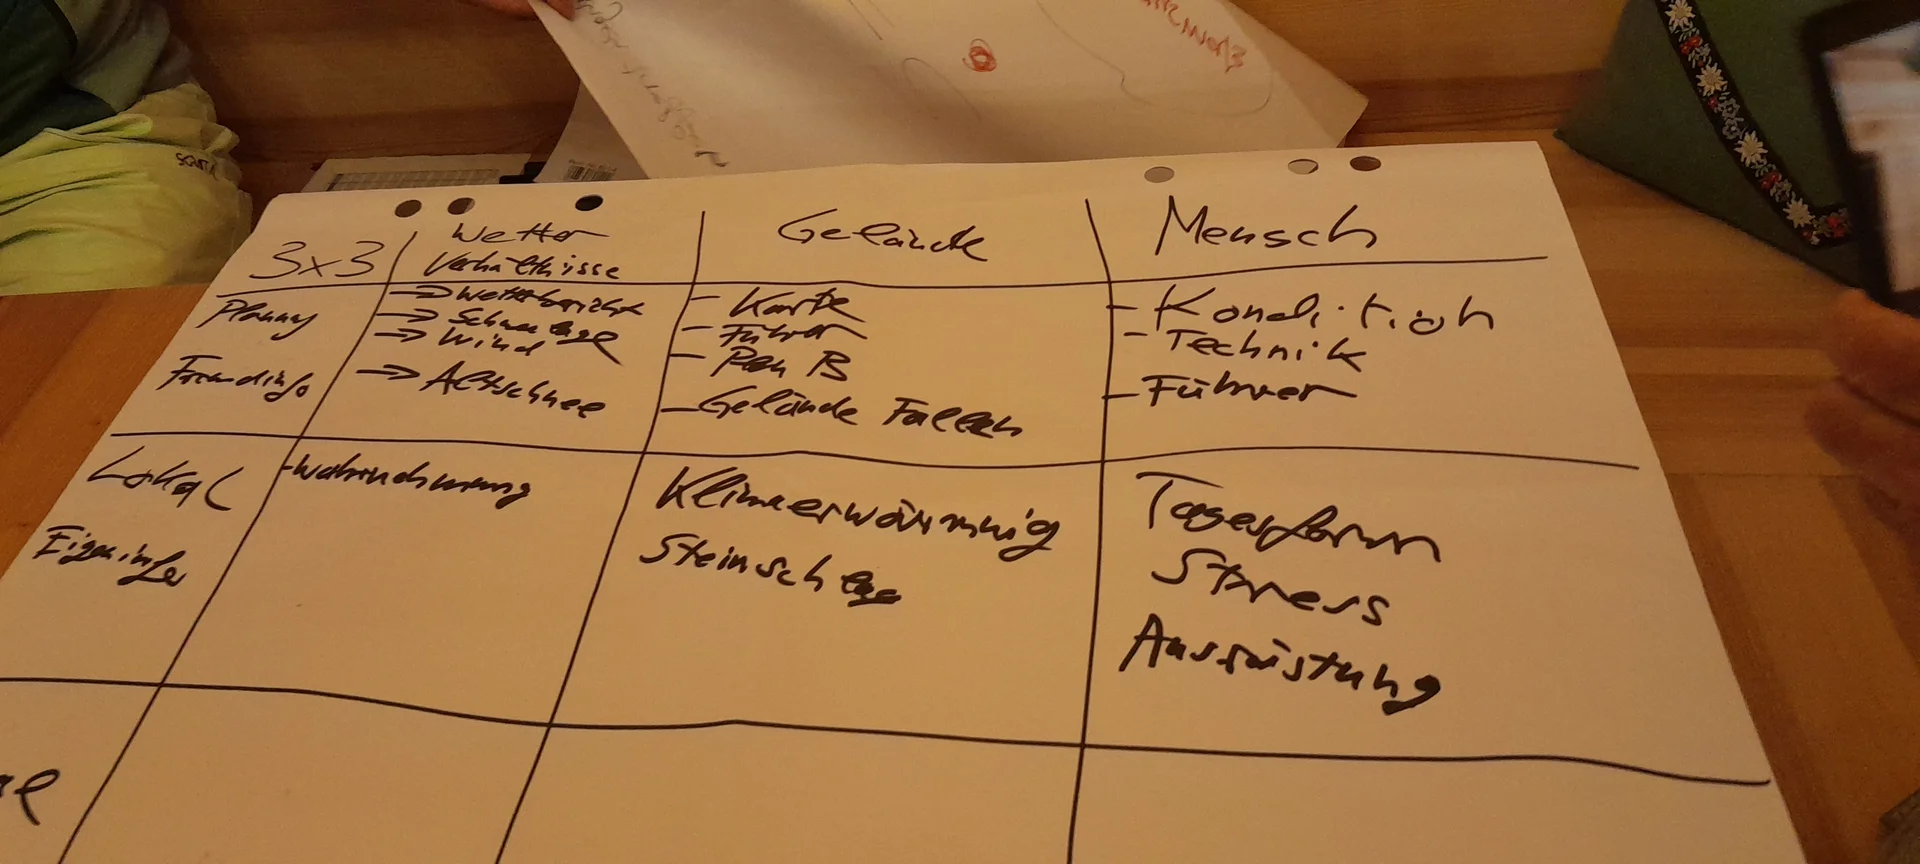 3x3
Wetter
Verhältnisse
Gelände
Mensch
Planung
Fremdinfo
→ Wetterbericht
→ Schneelage
→ Wind
→ Altschnee
- Karte
- Führer
- Plan B
- Gelände Fallen
- Kondition
- Technik
- Führer
Lokal
Eigeninfo
- Wahrnehmung
Klimaerwärmung
Steinschlag
Tagesform
Stress
Ausrüstung